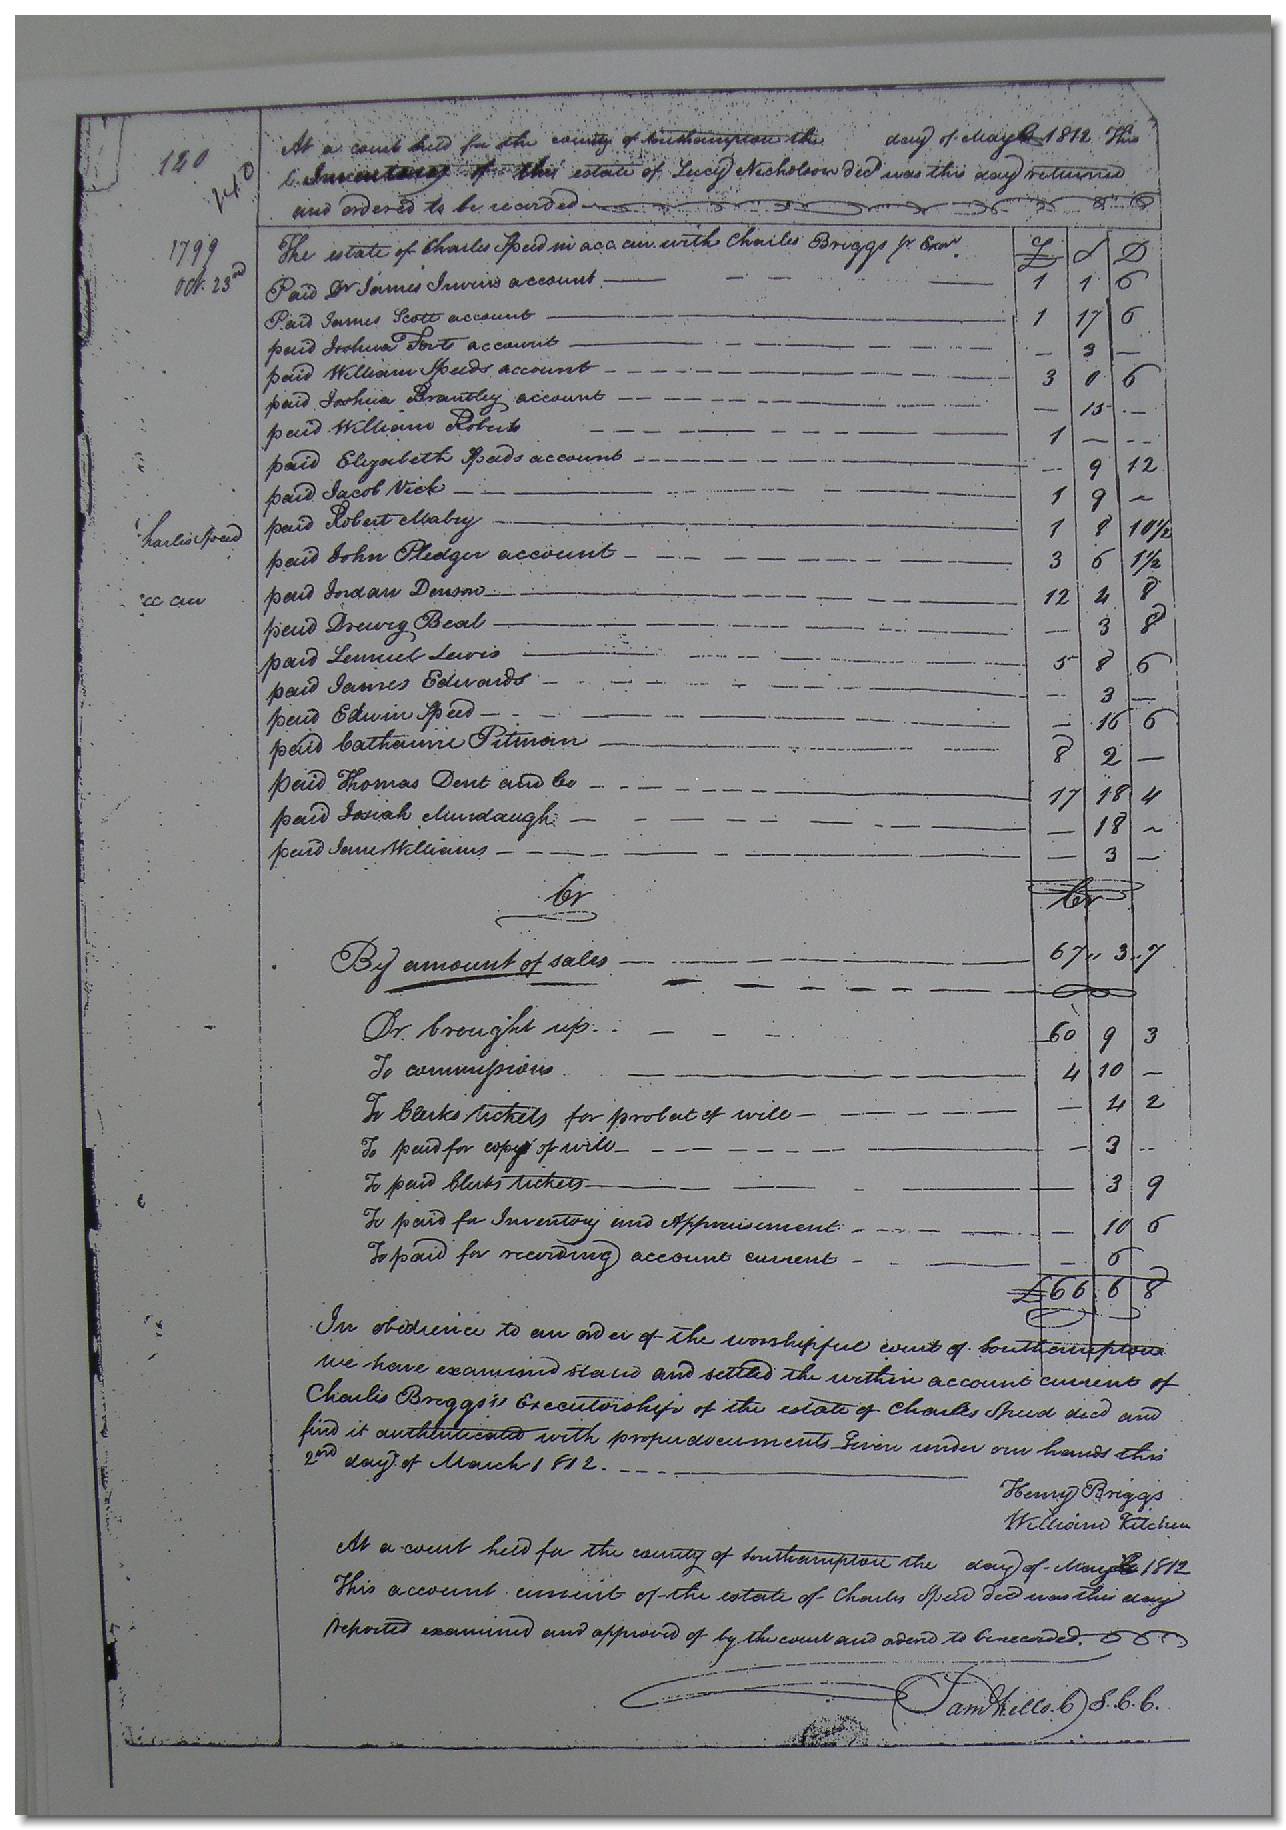 120
240
At a court held for the county of Southampton the day of May 1812 This
Inventory of this estate of Lucy Nicholson decd was this day returned
and ordered to be recorded
1799
Oct. 23rd
The estate of Charles Speed in acc cur. with Charles Briggs Jr Exor.
£ S D
Paid Dr James Irwins account 1 1 6
Paid James Scott account 1 17 6
paid Joshua Forts account — 3 —
paid William Speeds account 3 0 6
paid Joshua Brantley account — 15 —
paid William Roberts 1 — —
paid Elizabeth Speeds account — 9 12
paid Jacob Vick 1 9 ~
paid Robert Mabry 1 8 10½
harles Speed
paid John Pledger account 3 6 1½
cc cur
paid Jordan Denson 12 4 8
paid Drewry Beal — 3 8
paid Lemuel Lewis 5 8 6
paid James Edwards — 3 —
paid Edwin Speed — 16 6
paid Catharine Pitman 8 2 —
paid Thomas Dent and Co 17 18 4
paid Josiah Murdaugh — 18 ~
paid Jame Williams — 3 —
Cr Cr
By amount of sales 67 " 3 " 7
Dr. brought up 60 9 3
To commissions 4 10 —
To Clerks tickets for probat of will — 4 2
To paid for copy of will — 3 --
To paid Clerks tickets — 3 9
To paid for Inventory and Appraisement — 10 6
To paid for recording account current — 6
£66 6 8
In obidience to an order of the worshipful court of Southampton
we have examined stated and settled the within account current of
Charles Briggs's Executorship of the estate of Charles Speed decd and
find it authenticated with proper documents Given under our hands this
2nd day of March 1812.
Henry Briggs
William Kitchen
At a court held for the county of Southampton the day of May 1812
This account current of the estate of Charles Speed decd was this day
reported examined and approved of by the court and orderd to be recorded.
S.C.C.